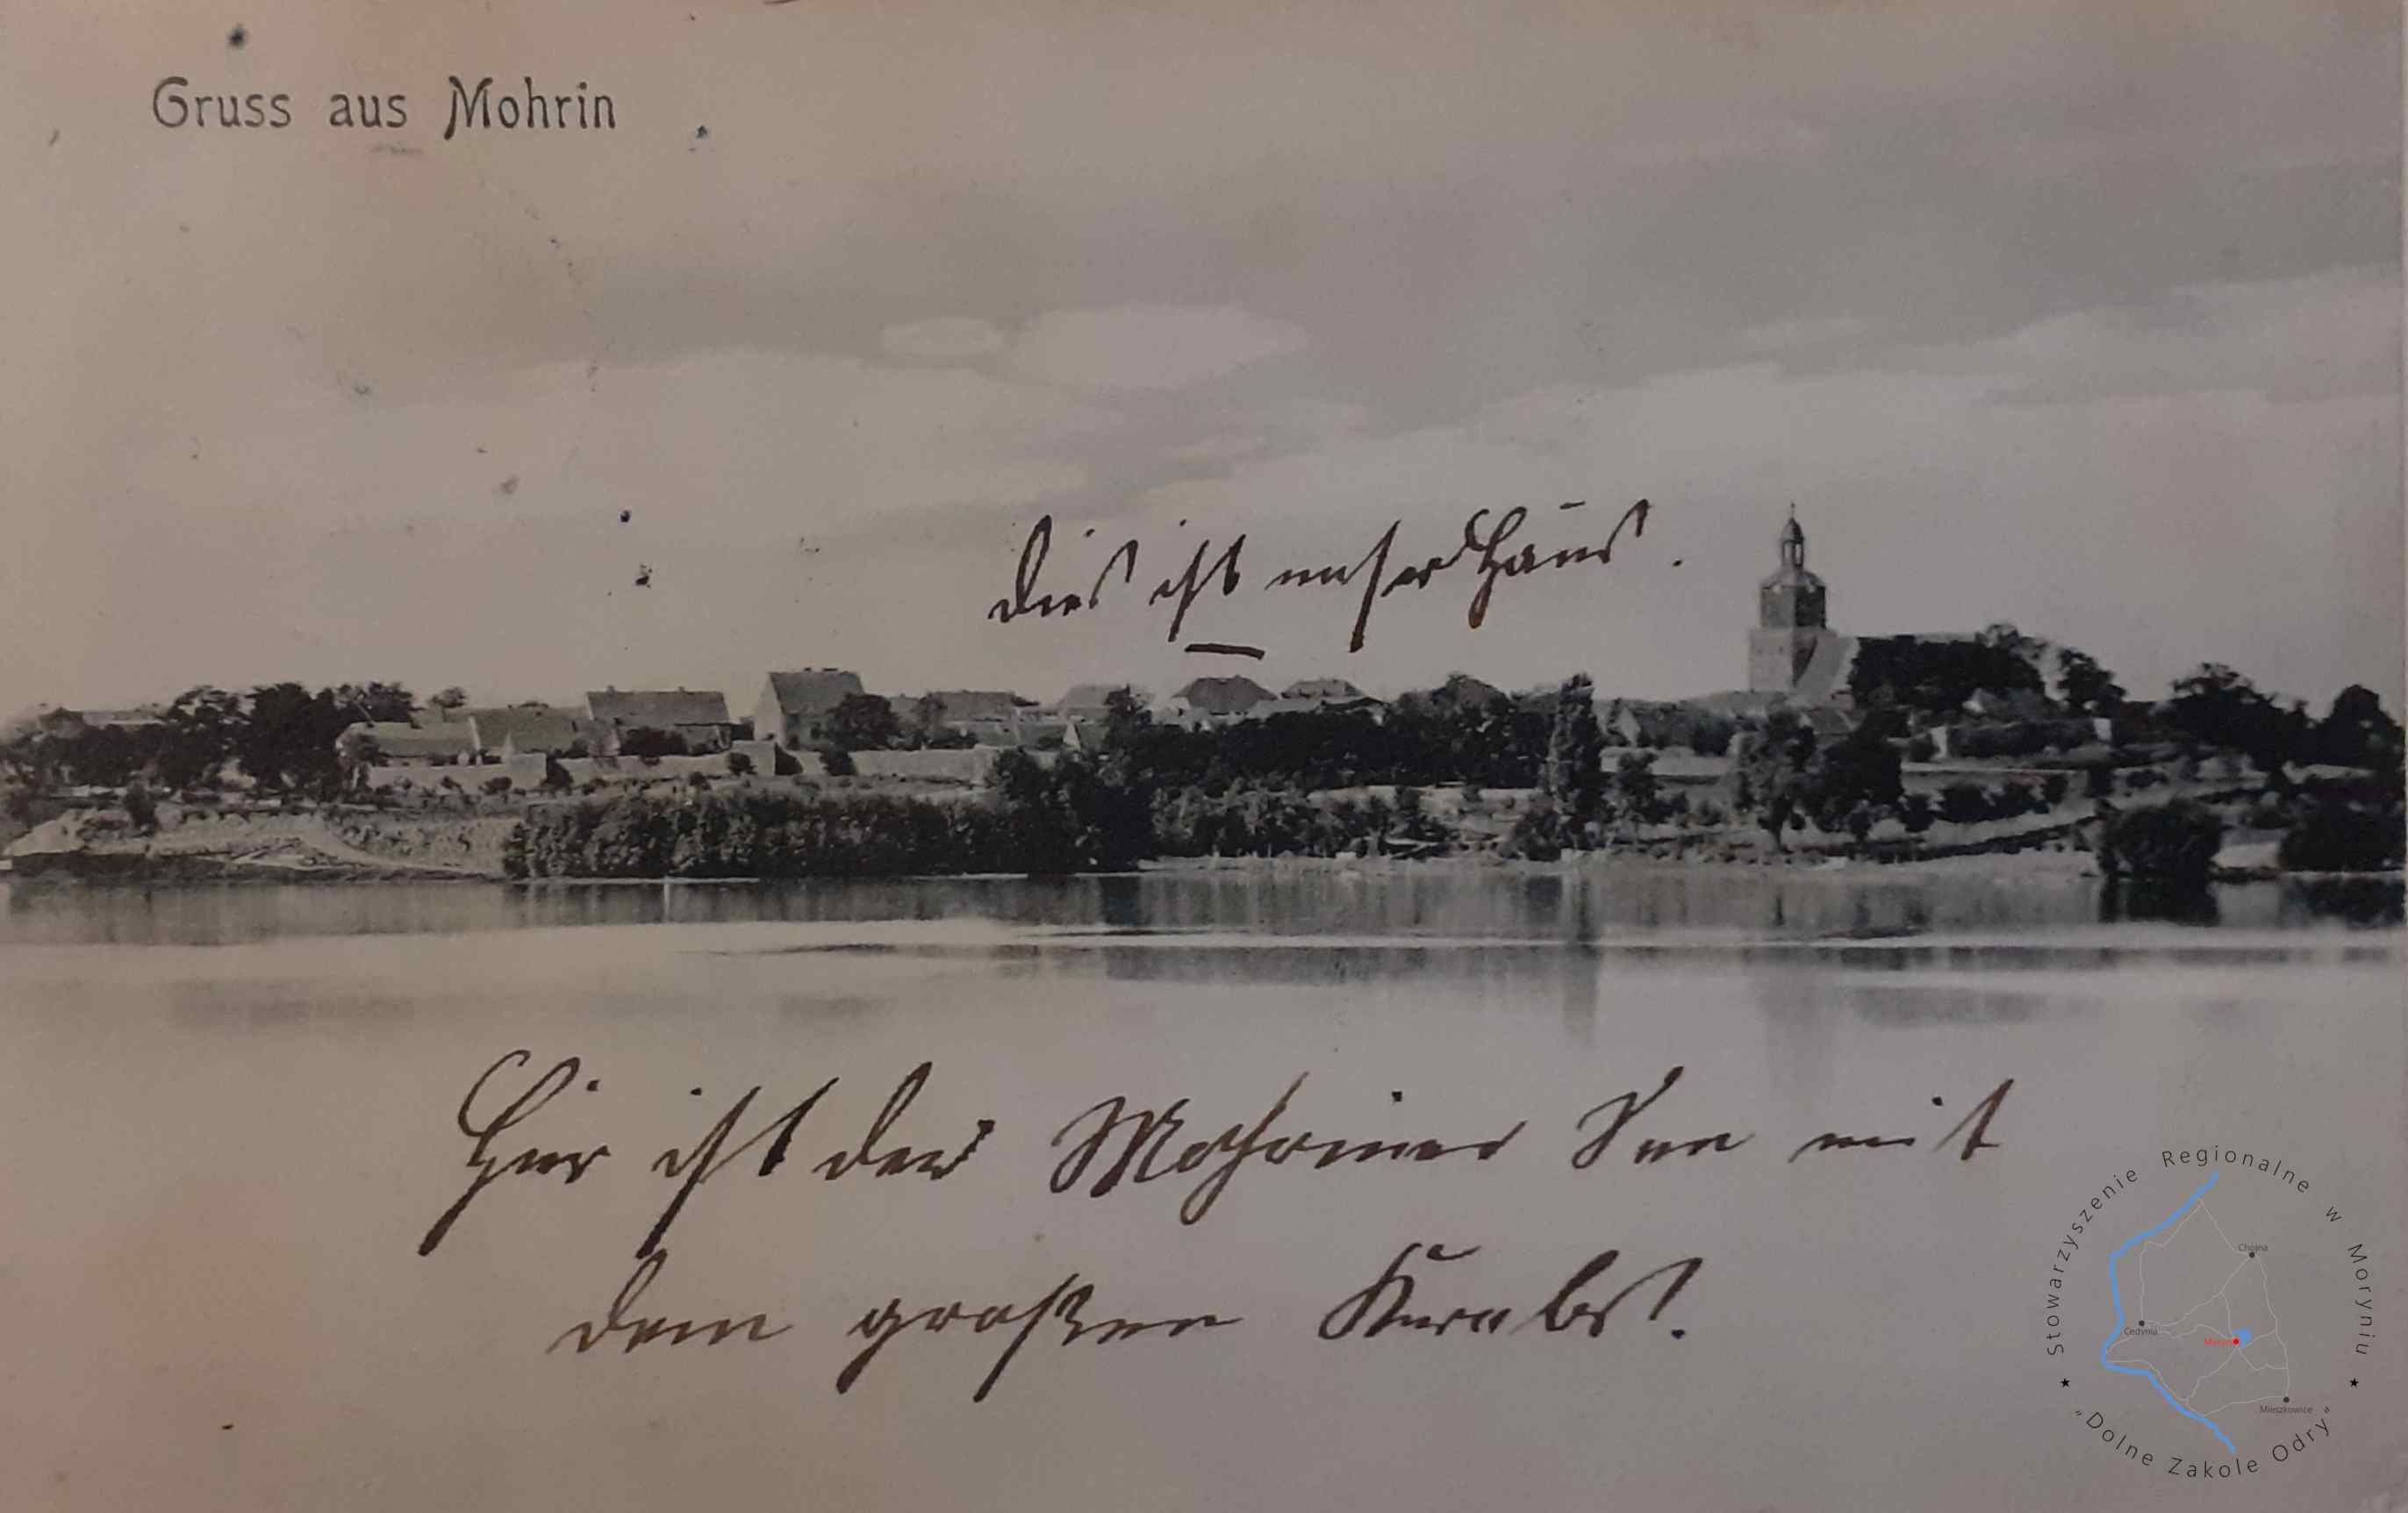 Gruss aus Mohrin
Dies ist unser Haus.
Hier ist der Mohriner See mit
dem großen Krebs!
Stowarzyszenie Regionalne w Moryniu
"Dolne Zakole Odry"
Chojna
Cedynia
Moryń
Mieszkowice